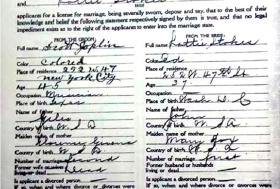 applicants for a license for marriage, being severally sworn, depose and say, that to the best of their
knowledge and belief the following statement respectively signed by them is true, and that no legal
impediment exists as to the right of the applicants to enter into the marriage state.
FROM THE GROOM:
Full name Scott Joplin
Color Colored
Place of residence 252 W 47
New York City
Age
Occupation Musician
Place of birth Texas
Name of father
Giles
Country of birth U S A
Maiden name of mother
Country of birth U S A
Number of marriage Second
Former wife
living or dead
Is applicant a divorced person
If so, when and where divorce or divorces were
FROM THE BRIDE:
Full name Lottie Stokes
Color
Place of residence
252 W 47th St
Age
Occupation
Place of birth Wash D. C
Name of father
John
Country of birth U S A
Maiden name of mother
Mary Fox
Country of birth
Number of marriage first
Former husband or husbands
living or dead
Is applicant a divorced person
If so, when and where divorce or divorces were